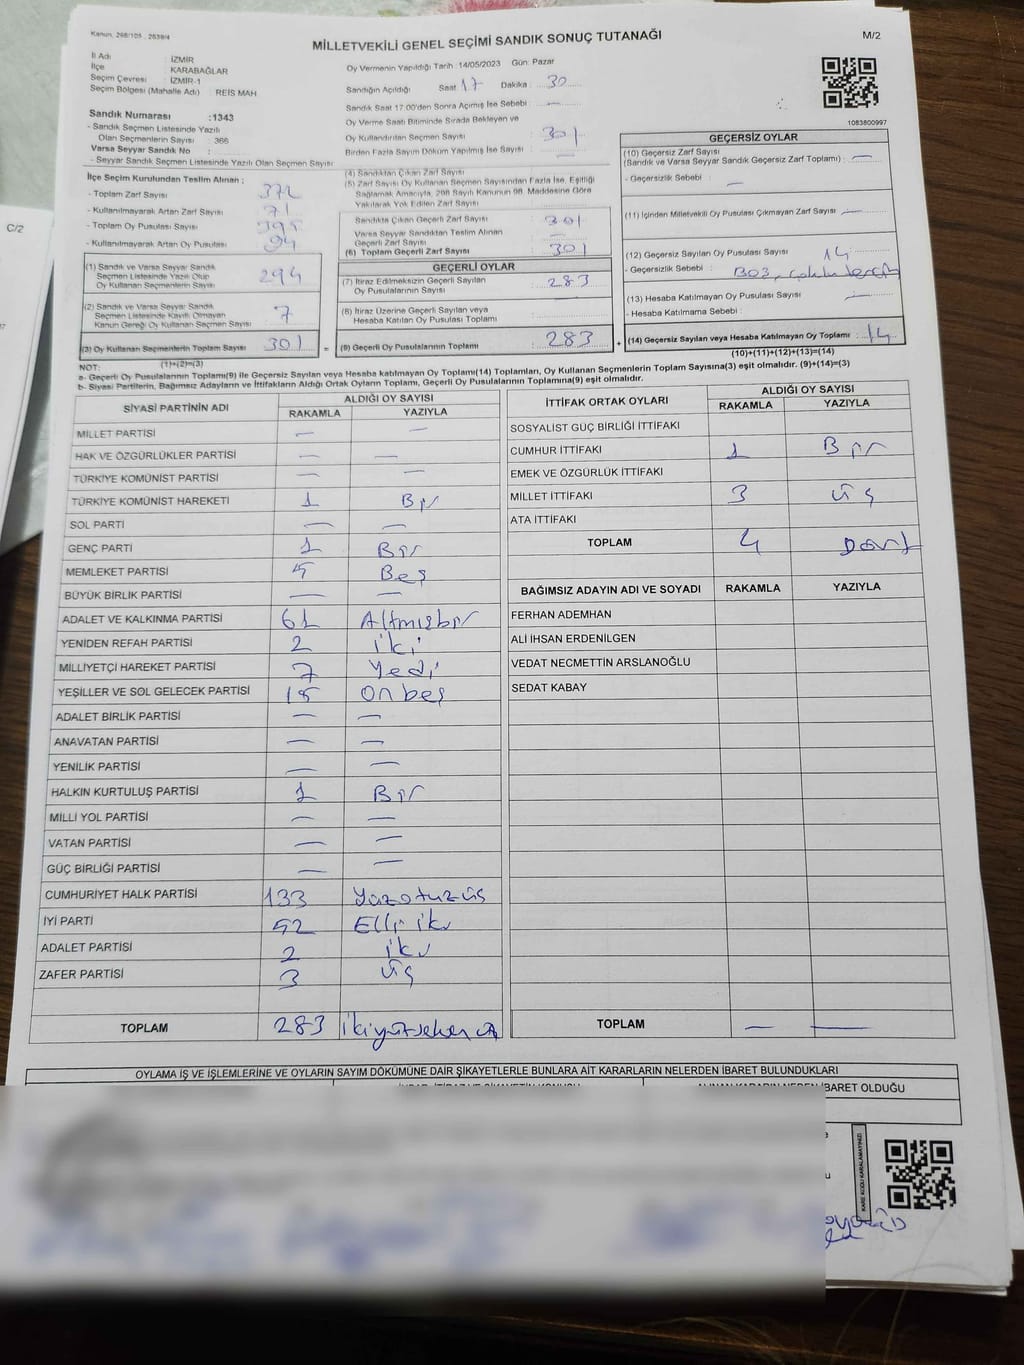 Kanun, 298/105 , 2839/4
MİLLETVEKİLİ GENEL SEÇİMİ SANDIK SONUÇ TUTANAĞI
M/2
C/2
İl Adı : İZMİR
İlçe : KARABAĞLAR
Seçim Çevresi : İZMİR-1
Seçim Bölgesi (Mahalle Adı) : REİS MAH
Sandık Numarası :1343
- Sandık Seçmen Listesinde Yazılı
Olan Seçmenlerin Sayısı : 366
Varsa Seyyar Sandık No :
- Seyyar Sandık Seçmen Listesinde Yazılı Olan Seçmen Sayısı:
Oy Vermenin Yapıldığı Tarih :14/05/2023 Gün: Pazar
Sandığın Açıldığı Saat 17 Dakika : 30
Sandık Saat 17:00'den Sonra Açımış İse Sebebi : —
Oy Verme Saati Bitiminde Sırada Bekleyen ve
Oy Kullandırılan Seçmen Sayısı : 301
Birden Fazla Sayım Döküm Yapılmış İse Sayısı : —
1083800997
İlçe Seçim Kurulundan Teslim Alınan ;
- Toplam Zarf Sayısı : 372
- Kullanılmayarak Artan Zarf Sayısı : 71
- Toplam Oy Pusulası Sayısı : 395
- Kullanılmayarak Artan Oy Pusulası : 94
(1) Sandık ve Varsa Seyyar Sandık
Seçmen Listesinde Yazılı Olup
Oy Kullanan Seçmenlerin Sayısı : 294
(2) Sandık ve Varsa Seyyar Sandık
Seçmen Listesinde Kayıtlı Olmayan
Kanun Gereği Oy Kullanan Seçmen Sayısı : 7
(3) Oy Kullanan Seçmenlerin Toplam Sayısı : 301
(1)+(2)=(3)
(4) Sandıktan Çıkan Zarf Sayısı
(5) Zarf Sayısı Oy Kullanan Seçmen Sayısından Fazla İse, Eşitliği
Sağlamak Amacıyla, 298 Sayılı Kanunun 98. Maddesine Göre
Yakılarak Yok Edilen Zarf Sayısı
Sandıkta Çıkan Geçerli Zarf Sayısı : 301
Varsa Seyyar Sandıktan Teslim Alınan
Geçerli Zarf Sayısı : —
(6) Toplam Geçerli Zarf Sayısı : 301
GEÇERLİ OYLAR
(7) İtiraz Edilmeksizin Geçerli Sayılan
Oy Pusulalarının Sayısı : 283
(8) İtiraz Üzerine Geçerli Sayılan veya
Hesaba Katılan Oy Pusulası Toplamı :
= (9) Geçerli Oy Pusulalarının Toplamı : 283
GEÇERSİZ OYLAR
(10) Geçersiz Zarf Sayısı
(Sandık ve Varsa Seyyar Sandık Geçersiz Zarf Toplamı) : —
- Geçersizlik Sebebi : —
(11) İçinden Milletvekili Oy Pusulası Çıkmayan Zarf Sayısı : —
(12) Geçersiz Sayılan Oy Pusulası Sayısı : 14
- Geçersizlik Sebebi :
(13) Hesaba Katılmayan Oy Pusulası Sayısı : —
- Hesaba Katılmama Sebebi :
+ (14) Geçersiz Sayılan veya Hesaba Katılmayan Oy Toplamı : 14
(10)+(11)+(12)+(13)=(14)
NOT:
a- Geçerli Oy Pusulalarının Toplamı(9) ile Geçersiz Sayılan veya Hesaba katılmayan Oy Toplamı(14) Toplamları, Oy Kullanan Seçmenlerin Toplam Sayısına(3) eşit olmalıdır. (9)+(14)=(3)
b- Siyasi Partilerin, Bağımsız Adayların ve İttifakların Aldığı Ortak Oyların Toplamı, Geçerli Oy Pusulalarının Toplamına(9) eşit olmalıdır.
SİYASİ PARTİNİN ADI ALDIĞI OY SAYISI
RAKAMLA YAZIYLA
MİLLET PARTİSİ — —
HAK VE ÖZGÜRLÜKLER PARTİSİ — —
TÜRKİYE KOMÜNİST PARTİSİ — —
TÜRKİYE KOMÜNİST HAREKETİ 1 Bir
SOL PARTİ — —
GENÇ PARTİ 1 Bir
MEMLEKET PARTİSİ 5 Beş
BÜYÜK BİRLİK PARTİSİ — —
ADALET VE KALKINMA PARTİSİ 61 Altmışbir
YENİDEN REFAH PARTİSİ 2 iki
MİLLİYETÇİ HAREKET PARTİSİ 7 Yedi
YEŞİLLER VE SOL GELECEK PARTİSİ 15 Onbeş
ADALET BİRLİK PARTİSİ — —
ANAVATAN PARTİSİ — —
YENİLİK PARTİSİ — —
HALKIN KURTULUŞ PARTİSİ 1 Bir
MİLLİ YOL PARTİSİ — —
VATAN PARTİSİ — —
GÜÇ BİRLİĞİ PARTİSİ — —
CUMHURİYET HALK PARTİSİ 133 Yüzotuzüç
İYİ PARTİ 52 Elli iki
ADALET PARTİSİ 2 iki
ZAFER PARTİSİ 3 üç
TOPLAM 283
İTTİFAK ORTAK OYLARI ALDIĞI OY SAYISI
RAKAMLA YAZIYLA
SOSYALİST GÜÇ BİRLİĞİ İTTİFAKI
CUMHUR İTTİFAKI 1 Bir
EMEK VE ÖZGÜRLÜK İTTİFAKI
MİLLET İTTİFAKI 3 üç
ATA İTTİFAKI
TOPLAM 4 Dört
BAĞIMSIZ ADAYIN ADI VE SOYADI RAKAMLA YAZIYLA
FERHAN ADEMHAN
ALİ İHSAN ERDENİLGEN
VEDAT NECMETTİN ARSLANOĞLU
SEDAT KABAY
TOPLAM — —
OYLAMA İŞ VE İŞLEMLERİNE VE OYLARIN SAYIM DÖKÜMÜNE DAİR ŞİKAYETLERLE BUNLARA AİT KARARLARIN NELERDEN İBARET BULUNDUKLARI
İBARET OLDUĞU
KARE KODU KARALAMAYINIZ!